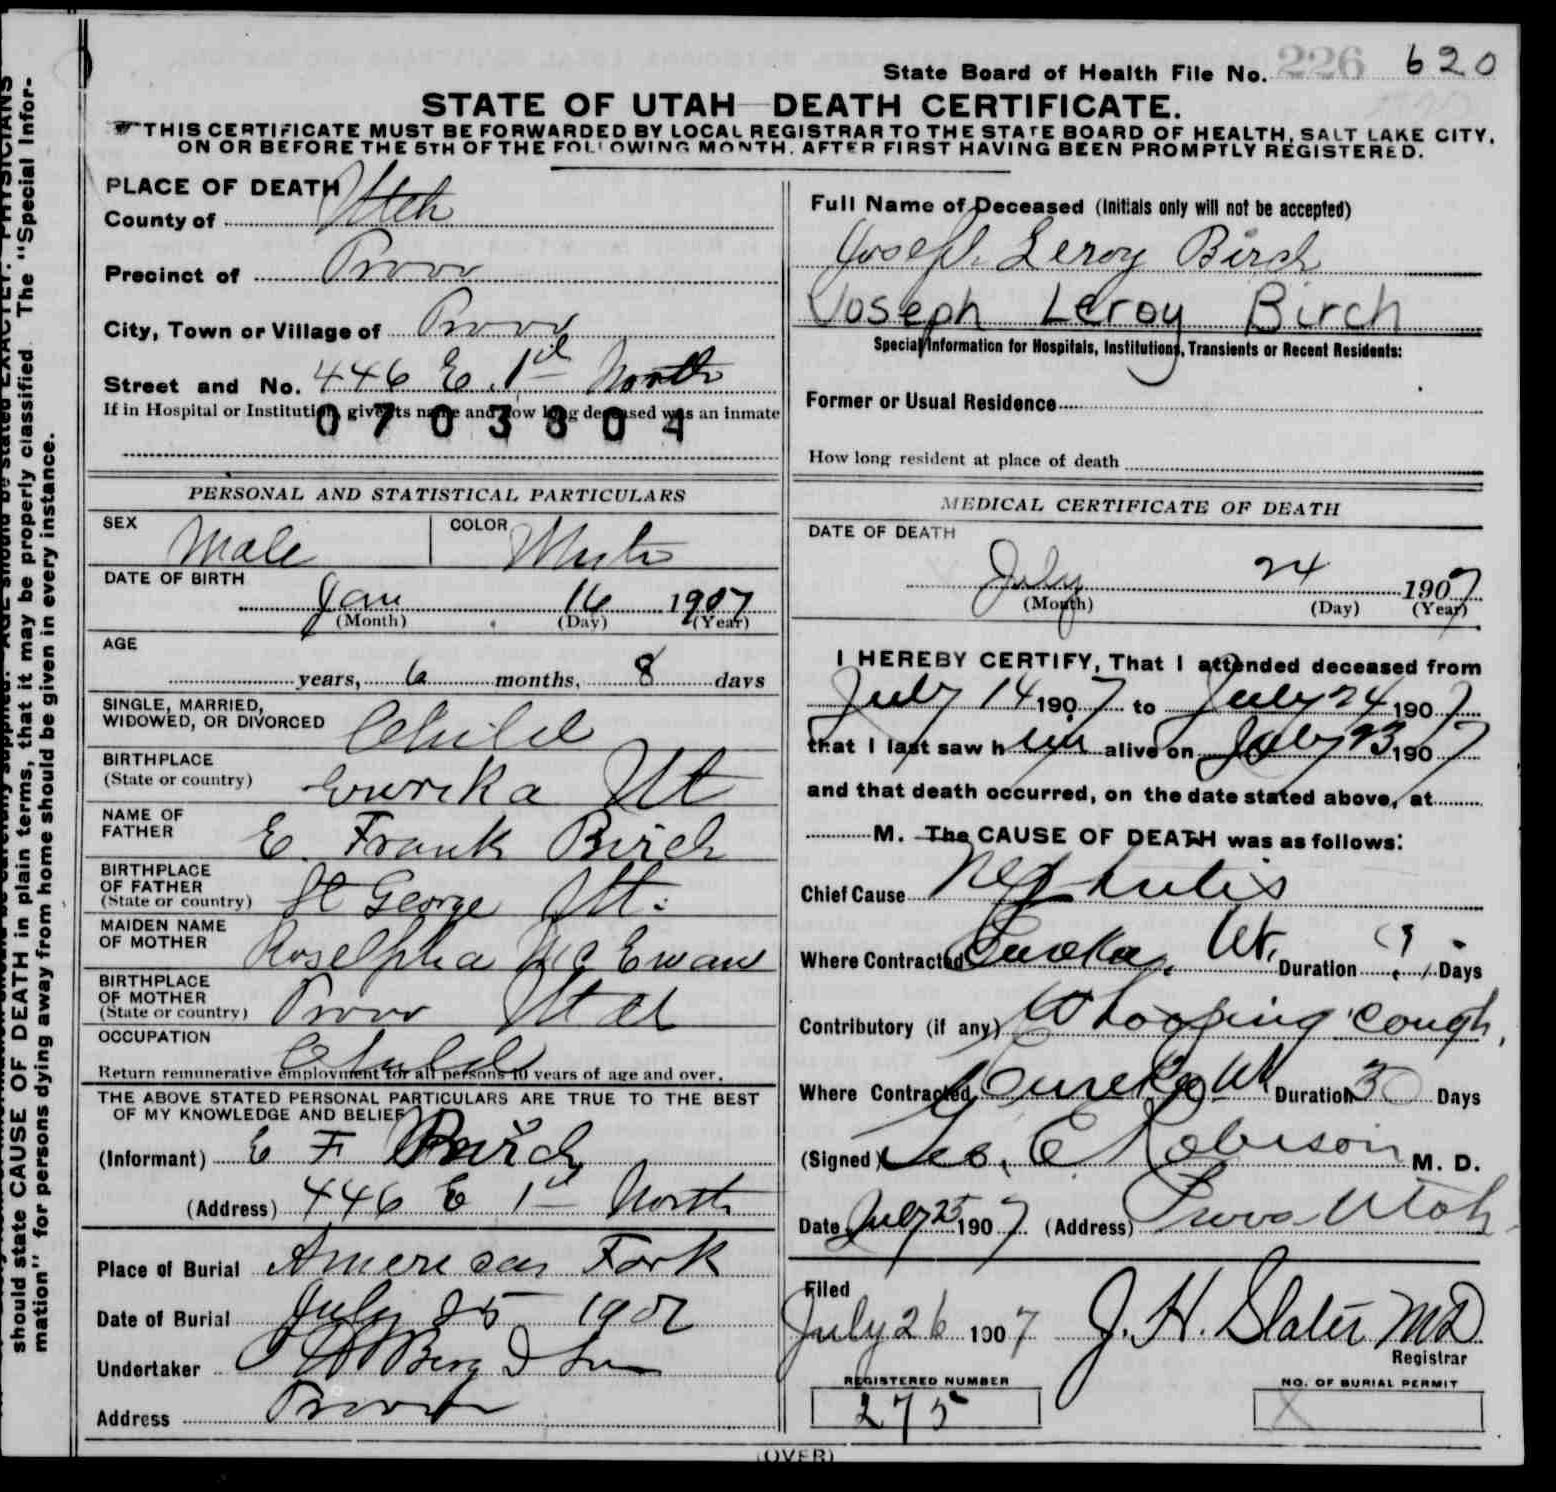 State Board of Health File No. 226 620
STATE OF UTAH DEATH CERTIFICATE.
THIS CERTIFICATE MUST BE FORWARDED BY LOCAL REGISTRAR TO THE STATE BOARD OF HEALTH, SALT LAKE CITY,
ON OR BEFORE THE 5TH OF THE FOLLOWING MONTH. AFTER FIRST HAVING BEEN PROMPTLY REGISTERED.
PLACE OF DEATH
County of Utah
Precinct of Provo
City, Town or Village of Provo
Street and No. 446 E. 1st North
If in Hospital or Institution, give its name and how long deceased was an inmate
0703804
PERSONAL AND STATISTICAL PARTICULARS
SEX Male COLOR White
DATE OF BIRTH
Jan 16 1907
(Month) (Day) (Year)
AGE
years, 6 months, 8 days
SINGLE, MARRIED,
WIDOWED, OR DIVORCED Child
BIRTHPLACE
(State or country) Eureka Ut
NAME OF
FATHER E. Frank Birch
BIRTHPLACE
OF FATHER
(State or country) St George Ut.
MAIDEN NAME
OF MOTHER Roselpha Mc Ewan
BIRTHPLACE
OF MOTHER
(State or country) Provo Utah
OCCUPATION Child
Return remunerative employment for all persons 10 years of age and over.
THE ABOVE STATED PERSONAL PARTICULARS ARE TRUE TO THE BEST
OF MY KNOWLEDGE AND BELIEF
(Informant) E F Birch
(Address) 446 E 1st North
Place of Burial American Fork
Date of Burial July 25 1907
Undertaker Berg & Son
Address Provo
Full Name of Deceased (Initials only will not be accepted)
Joseph Leroy Birch
Joseph Leroy Birch
Special Information for Hospitals, Institutions, Transients or Recent Residents:
Former or Usual Residence
How long resident at place of death
MEDICAL CERTIFICATE OF DEATH
DATE OF DEATH
July 24 1907
(Month) (Day) (Year)
I HEREBY CERTIFY, That I attended deceased from
July 14 1907 to July 24 1907
that I last saw him alive on July 23 1907
and that death occurred, on the date stated above, at
M. The CAUSE OF DEATH was as follows:
Chief Cause Nephritis
Where Contracted Eureka, Ut. Duration ? Days
Contributory (if any) Whooping Cough,
Where Contracted Eureka Ut Duration 30 Days
(Signed) Geo. E Robison M. D.
Date July 25 1907 (Address) Provo Utah
Filed
July 26 1907 J. H. Slater MD
Registrar
REGISTERED NUMBER
275
NO. OF BURIAL PERMIT
X
(OVER)
should state CAUSE OF DEATH in plain terms, that it may be properly classified. The "Special Infor-
mation" for persons dying away from home should be given in every instance.